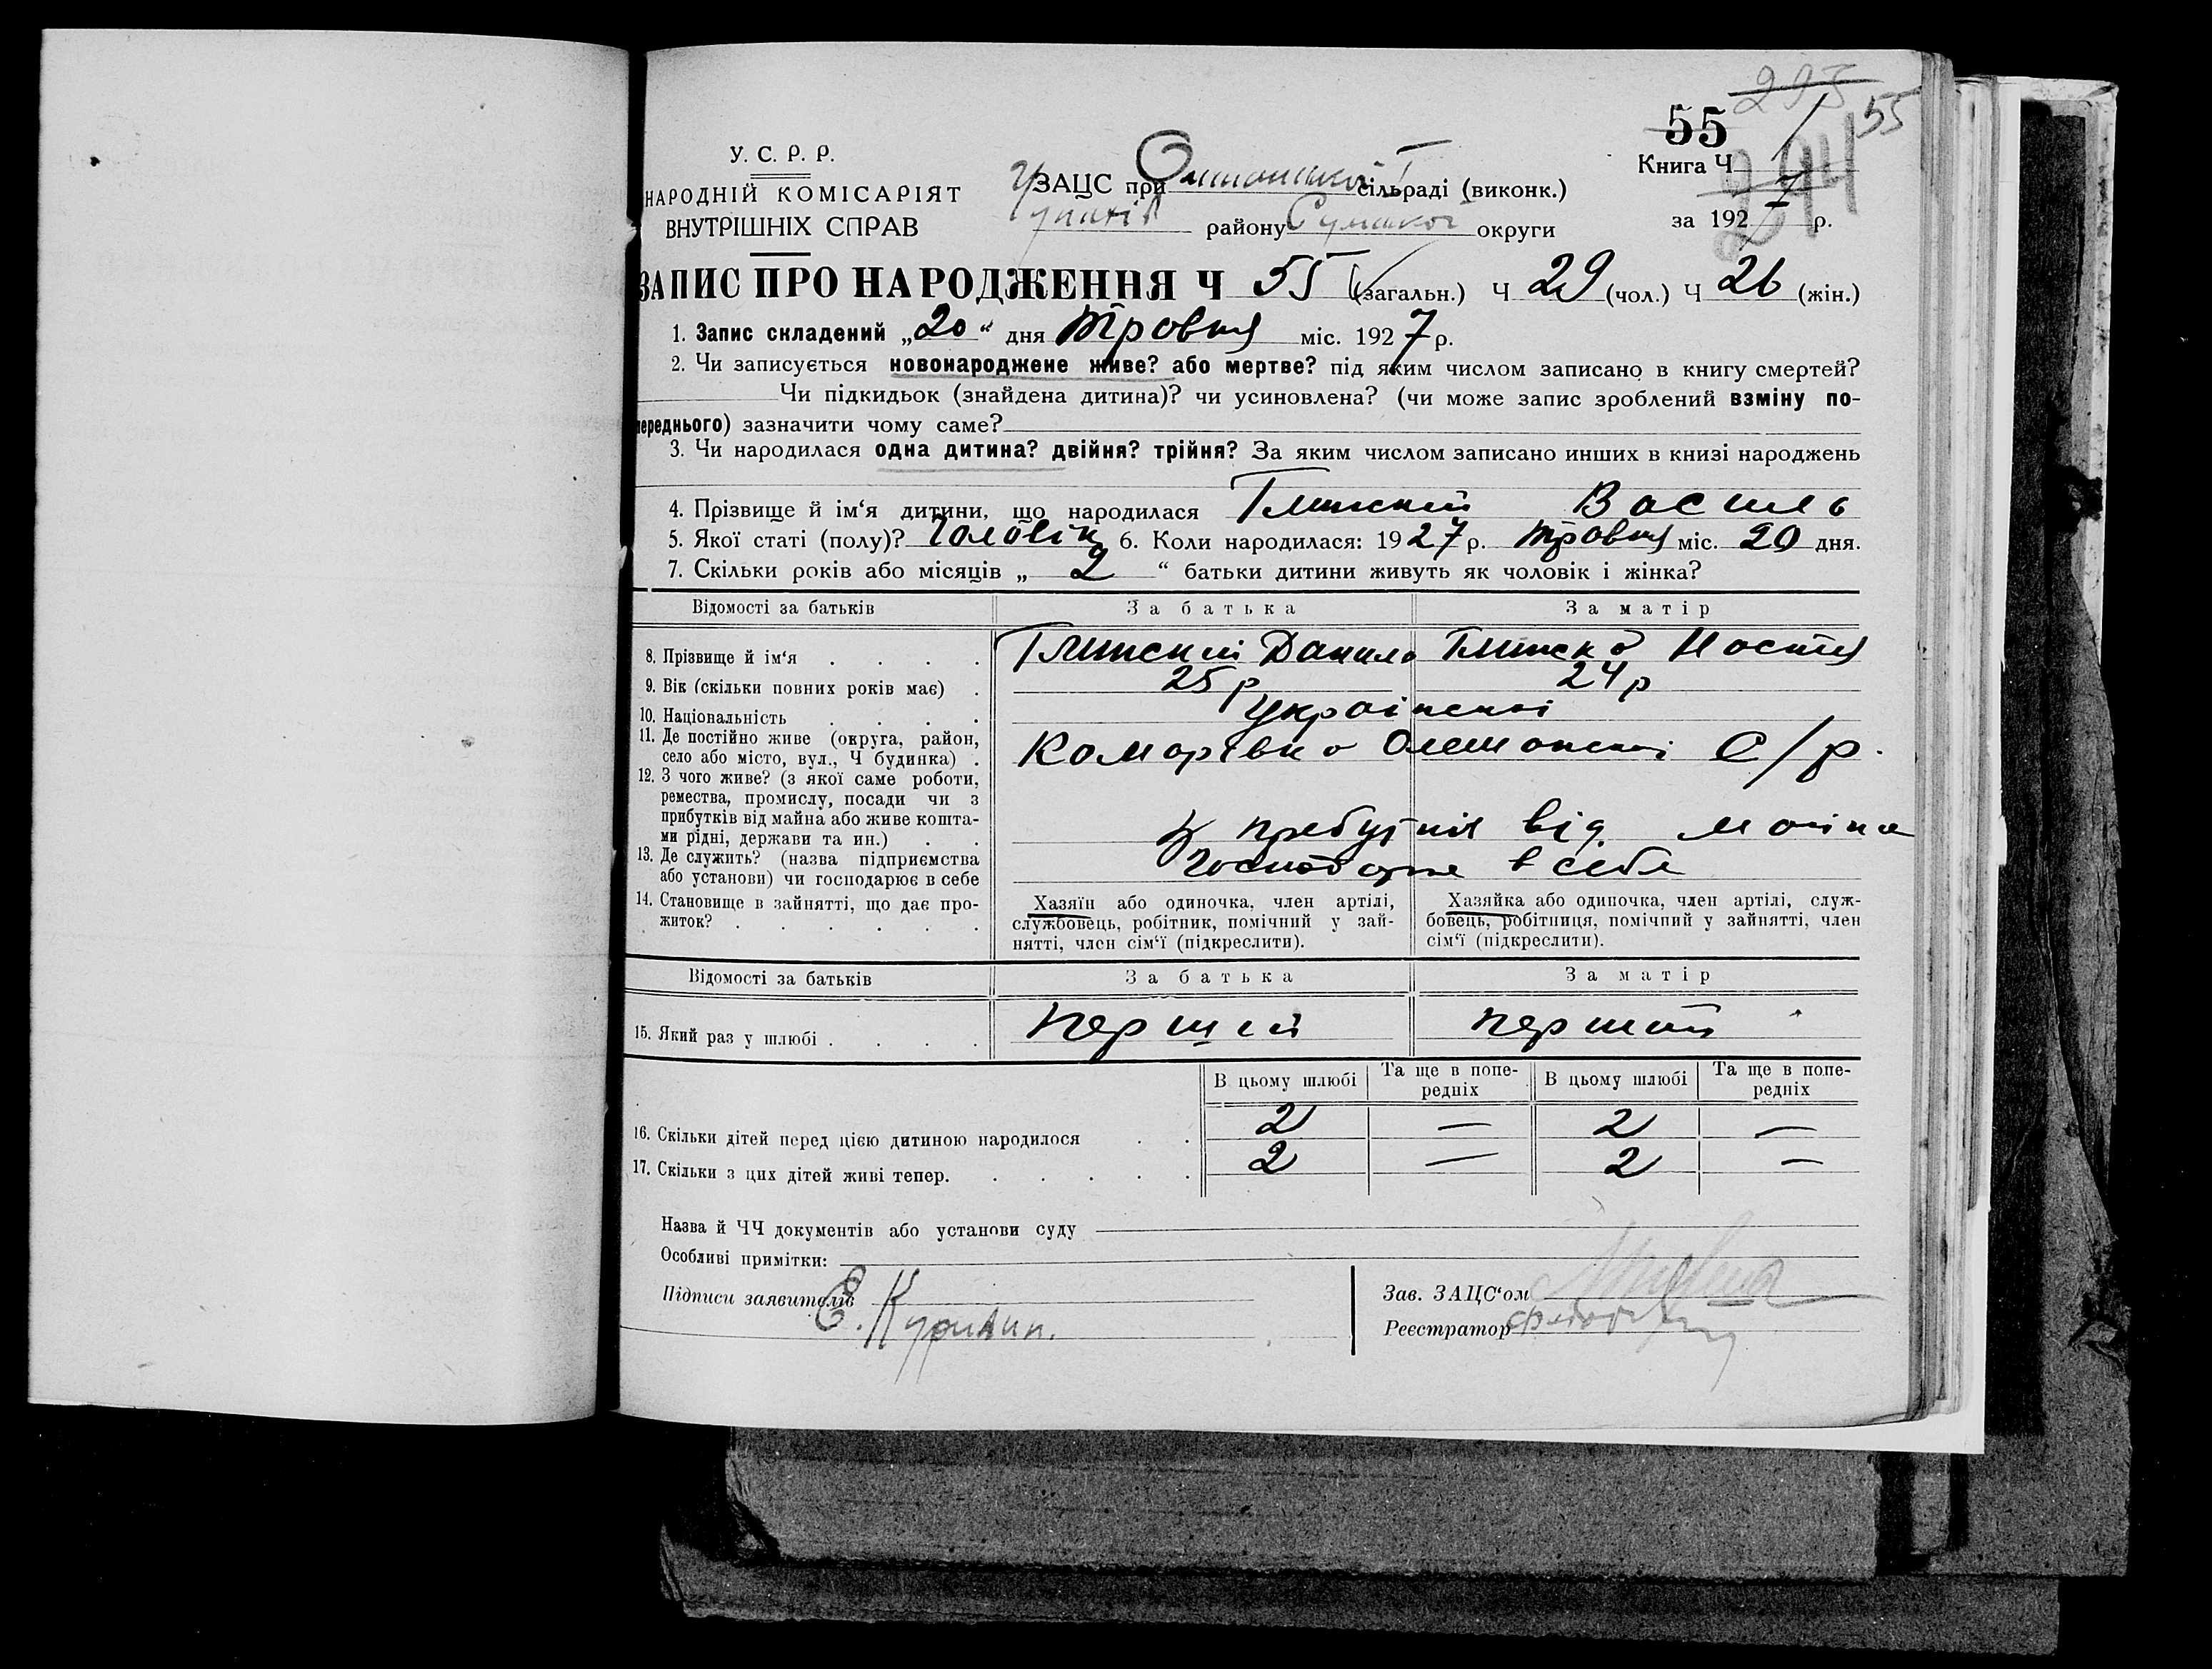 295
55 55
294
У. С. Р. Р.
НАРОДНІЙ КОМІСАРІЯТ
ВНУТРІШНІХ СПРАВ
ЗАЦС при сільраді (виконк.)
району Сумської округи
Книга Ч
за 1927 р.
ЗАПИС ПРО НАРОДЖЕННЯ Ч 55 (загальн.) Ч 29 (чол.) Ч 26 (жін.)
1. Запис складений „20“ дня Тровня міс. 1927 р.
2. Чи записується новонароджене живе? або мертве? під яким числом записано в книгу смертей?
Чи підкидьок (знайдена дитина)? чи усиновлена? (чи може запис зроблений взміну по-
переднього) зазначити чому саме?
3. Чи народилася одна дитина? двійня? трійня? За яким числом записано инших в книзі народжень
4. Прізвище й ім‘я дитини, що народилася Глинский Василь
5. Якої статі (полу)? Чоловік 6. Коли народилася: 1927 р. Тровня міс. 20 дня.
7. Скільки років або місяців „ 2 “ батьки дитини живуть як чоловік і жінка?
Відомості за батьків За батька За матір
8. Прізвище й ім‘я . . . . Глинский Данило Глинска Настя
9. Вік (скільки повних років має) . 25 р 24 р
10. Національність . . . . Українскі
11. Де постійно живе (округа, район,
село або місто, вул., Ч будинка) . Коморівка С/р.
12. З чого живе? (з якої саме роботи,
ремества, промислу, посади чи з
прибутків від майна або живе кошта-
ми рідні, держави та ин.) . . від
13. Де служить? (назва підприємства
або установи) чи господарює в себе в себе
14. Становище в зайнятті, що дає про-
житок? . . . . . .
Хазяїн або одиночка, член артілі,
службовець, робітник, помічний у зай-
нятті, член сім‘ї (підкреслити).
Хазяйка або одиночка, член артілі, служ-
бовець, робітниця, помічний у зайнятті, член
сім‘ї (підкреслити).
Відомості за батьків За батька За матір
15. Який раз у шлюбі . . . . перший перший
В цьому шлюбі Та ще в попе-
редніх В цьому шлюбі Та ще в попе-
редніх
16. Скільки дітей перед цією дитиною народилося . . 2 — 2 —
17. Скільки з цих дітей живі тепер. . . . . . 2 — 2 —
Назва й ЧЧ документів або установи суду
Особливі примітки:
Підписи заявителів
Зав. ЗАЦС‘ом
Реєстратор